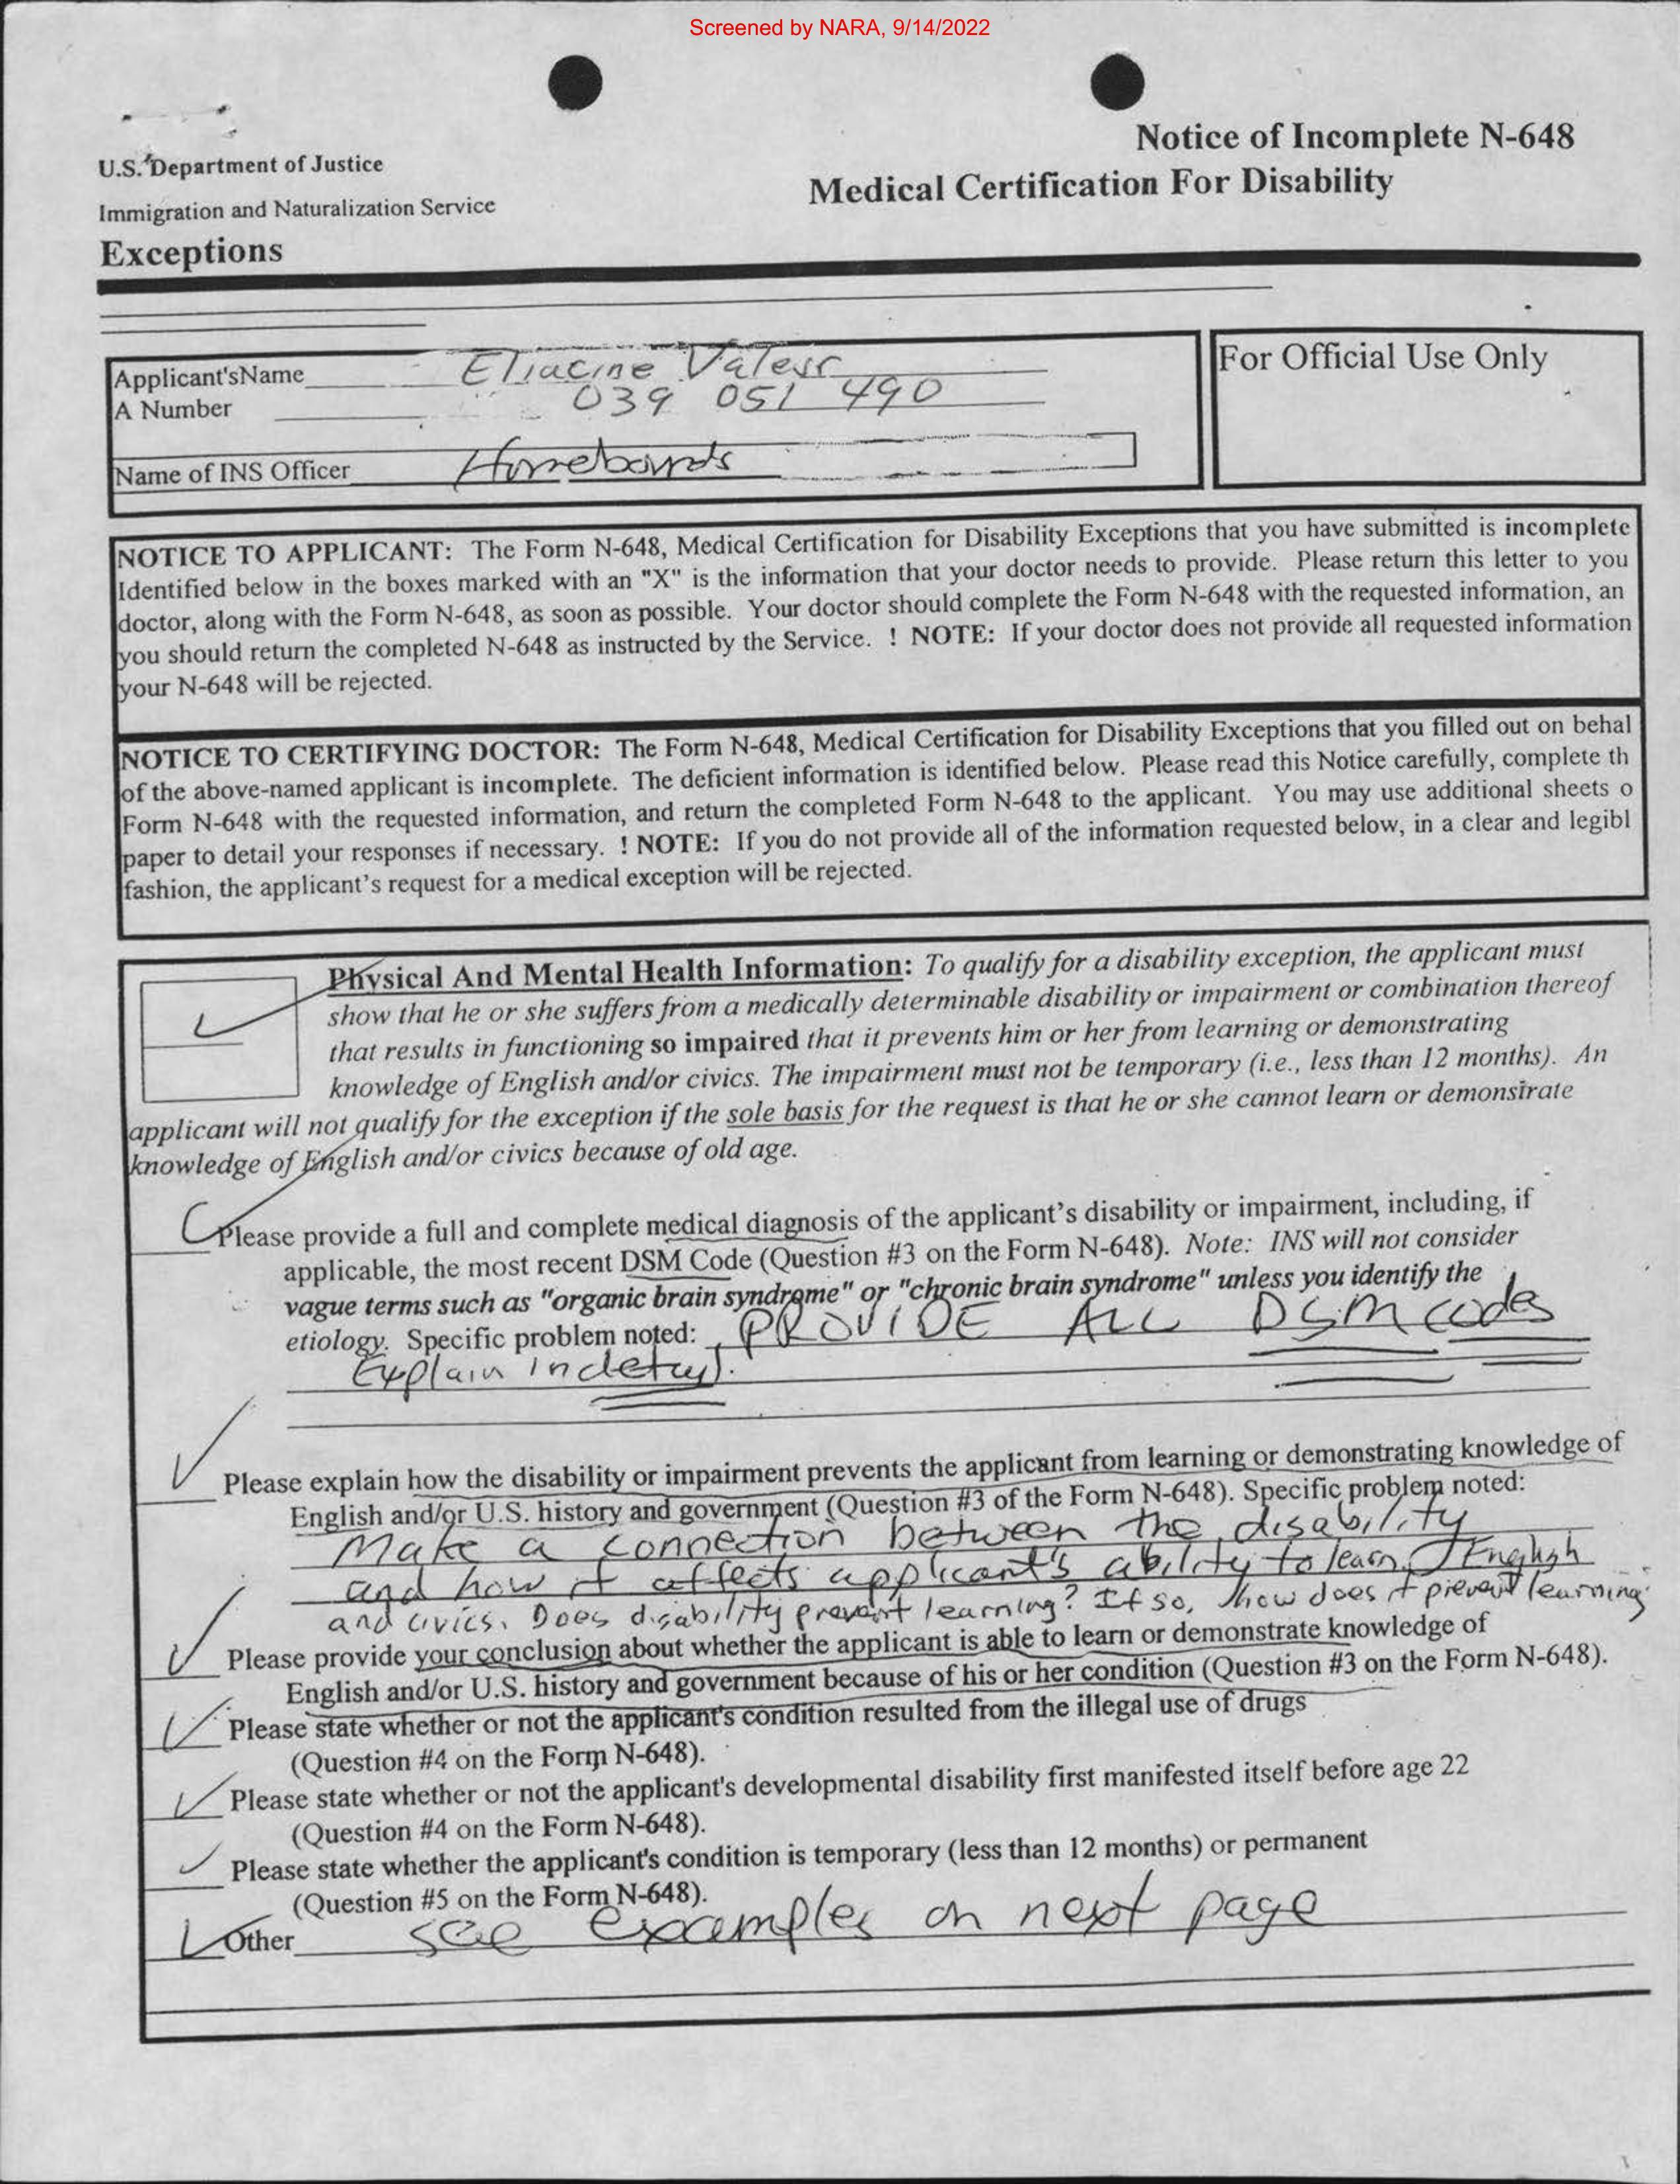 Screened by NARA, 9/14/2022
Notice of Incomplete N-648
U.S. Department of Justice
Medical Certification For Disability
Immigration and Naturalization Service
Exceptions
Applicant'sName Eliacine
A Number 039 051 490
Name of INS Officer Homebounds
For Official Use Only
NOTICE TO APPLICANT: The Form N-648, Medical Certification for Disability Exceptions that you have submitted is incomplete
Identified below in the boxes marked with an "X" is the information that your doctor needs to provide. Please return this letter to you
doctor, along with the Form N-648, as soon as possible. Your doctor should complete the Form N-648 with the requested information, an
you should return the completed N-648 as instructed by the Service. ! NOTE: If your doctor does not provide all requested information
your N-648 will be rejected.
NOTICE TO CERTIFYING DOCTOR: The Form N-648, Medical Certification for Disability Exceptions that you filled out on behal
of the above-named applicant is incomplete. The deficient information is identified below. Please read this Notice carefully, complete th
Form N-648 with the requested information, and return the completed Form N-648 to the applicant. You may use additional sheets o
paper to detail your responses if necessary. ! NOTE: If you do not provide all of the information requested below, in a clear and legibl
fashion, the applicant's request for a medical exception will be rejected.
Physical And Mental Health Information: To qualify for a disability exception, the applicant must
show that he or she suffers from a medically determinable disability or impairment or combination thereof
that results in functioning so impaired that it prevents him or her from learning or demonstrating
knowledge of English and/or civics. The impairment must not be temporary (i.e., less than 12 months). An
applicant will not qualify for the exception if the sole basis for the request is that he or she cannot learn or demonstrate
knowledge of English and/or civics because of old age.
Please provide a full and complete medical diagnosis of the applicant's disability or impairment, including, if
applicable, the most recent DSM Code (Question #3 on the Form N-648). Note: INS will not consider
vague terms such as "organic brain syndrome" or "chronic brain syndrome" unless you identify the
etiology. Specific problem noted: PROVIDE ALL DSM codes
Explain in detail.
Please explain how the disability or impairment prevents the applicant from learning or demonstrating knowledge of
English and/or U.S. history and government (Question #3 of the Form N-648). Specific problem noted:
Make a connection between the disability
and how it affects applicant's ability to learn English
and civics. Does disability prevent learning? If so, how does it prevent learning
Please provide your conclusion about whether the applicant is able to learn or demonstrate knowledge of
English and/or U.S. history and government because of his or her condition (Question #3 on the Form N-648).
Please state whether or not the applicant's condition resulted from the illegal use of drugs
(Question #4 on the Form N-648).
Please state whether or not the applicant's developmental disability first manifested itself before age 22
(Question #4 on the Form N-648).
Please state whether the applicant's condition is temporary (less than 12 months) or permanent
(Question #5 on the Form N-648).
Other see examples on next page